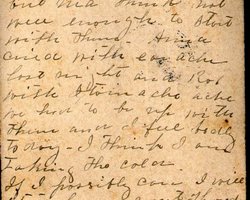 but Ina think not
well enough to start
with them - Ina
cried with ear ache
last night and Rob
with Stomach ache
we had to be up with
them and I feel badly
today - I think I am
taking the cold
If I possibly can I will